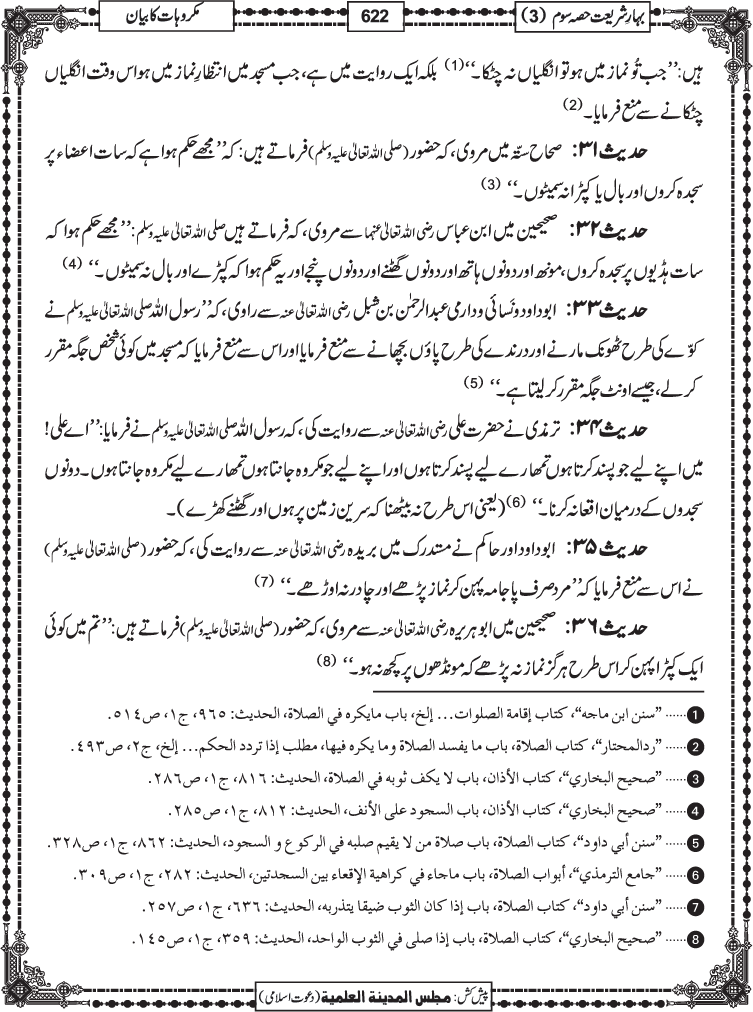 بہارِ شریعت حصہ سوم (3)
622
مکروہات کا بیان
ہیں: ’’جب تُو نماز میں ہو تو انگلیاں نہ چٹکا۔‘‘(1) بلکہ ایک روایت میں ہے، جب مسجد میں انتظارِ نماز میں ہو اس وقت انگلیاں
چٹکانے سے منع فرمایا۔(2)
حدیث ۳۱: صحاح ستّہ میں مروی، کہ حضور (صلی اللہ تعالیٰ علیہ وسلم) فرماتے ہیں: کہ ’’مجھے حکم ہوا ہے کہ سات اعضاء پر
سجدہ کروں اور بال یا کپڑا نہ سمیٹوں۔‘‘ (3)
حدیث ۳۲: صحیحین میں ابن عباس رضی اللہ تعالیٰ عنہما سے مروی، کہ فرماتے ہیں صلی اللہ تعالیٰ علیہ وسلم: ’’مجھے حکم ہوا کہ
سات ہڈیوں پر سجدہ کروں، مونھ اور دونوں ہاتھ اور دونوں گھٹنے اور دونوں پنجے اور یہ حکم ہوا کہ کپڑے اور بال نہ سمیٹوں۔‘‘ (4)
حدیث ۳۳: ابو داود و نَسائی و دارمی عبدالرحمٰن بن شبل رضی اللہ تعالیٰ عنہ سے راوی، کہ ’’رسول اللہ صلی اللہ تعالیٰ علیہ وسلم نے
کوّے کی طرح ٹھونک مارنے اور درندے کی طرح پاؤں بچھانے سے منع فرمایا اور اس سے منع فرمایا کہ مسجد میں کوئی شخص جگہ مقرر
کر لے، جیسے اونٹ جگہ مقرر کر لیتا ہے۔‘‘ (5)
حدیث ۳۴: ترمذی نے حضرت علی رضی اللہ تعالیٰ عنہ سے روایت کی، کہ رسول اللہ صلی اللہ تعالیٰ علیہ وسلم نے فرمایا: ’’اے علی!
میں اپنے لیے جو پسند کرتا ہوں تمھارے لیے پسند کرتا ہوں اور اپنے لیے جو مکروہ جانتا ہوں تمھارے لیے مکروہ جانتا ہوں۔ دونوں
سجدوں کے درمیان اقعا نہ کرنا۔‘‘ (6) (یعنی اس طرح نہ بیٹھنا کہ سرین زمین پر ہوں اور گھٹنے کھڑے)۔
حدیث ۳۵: ابو داود اور حاکم نے مستدرک میں بریدہ رضی اللہ تعالیٰ عنہ سے روایت کی، کہ حضور (صلی اللہ تعالیٰ علیہ وسلم)
نے اس سے منع فرمایا کہ ’’مرد صرف پاجامہ پہن کر نماز پڑھے اور چادر نہ اوڑھے۔‘‘ (7)
حدیث ۳۶: صحیحین میں ابوہریرہ رضی اللہ تعالیٰ عنہ سے مروی، کہ حضور (صلی اللہ تعالیٰ علیہ وسلم) فرماتے ہیں: ’’تم میں کوئی
ایک کپڑا پہن کر اس طرح ہرگز نماز نہ پڑھے کہ مونڈھوں پر کچھ نہ ہو۔‘‘ (8)
1 ...... ”سنن ابن ماجه“، كتاب إقامة الصلوات... إلخ، باب مايكره في الصلاة، الحديث: ٩٦٥، ج١، ص٥١٤.
2 ...... ”ردالمحتار“، كتاب الصلاة، باب ما يفسد الصلاة وما يكره فيها، مطلب إذا تردد الحكم... إلخ، ج٢، ص٤٩٣.
3 ...... ”صحيح البخاري“، كتاب الأذان، باب لا يكف ثوبه في الصلاة، الحديث: ٨١٦، ج١، ص٢٨٦.
4 ...... ”صحيح البخاري“، كتاب الأذان، باب السجود على الأنف، الحديث: ٨١٢، ج١، ص٢٨٥.
5 ...... ”سنن أبي داود“، كتاب الصلاة، باب صلاة من لا يقيم صلبه في الركوع و السجود، الحديث: ٨٦٢، ج١، ص٣٢٨.
6 ...... ”جامع الترمذي“، أبواب الصلاة، باب ماجاء في كراهية الإقعاء بين السجدتين، الحديث: ٢٨٢، ج١، ص٣٠٩.
7 ...... ”سنن أبي داود“، كتاب الصلاة، باب إذا كان الثوب ضيقا يتذربه، الحديث: ٦٣٦، ج١، ص٢٥٧.
8 ...... ”صحيح البخاري“، كتاب الصلاة، باب إذا صلى في الثوب الواحد، الحديث: ٣٥٩، ج١، ص١٤٥.
پیش کش: مجلس المدینة العلمیة (دعوت اسلامی)